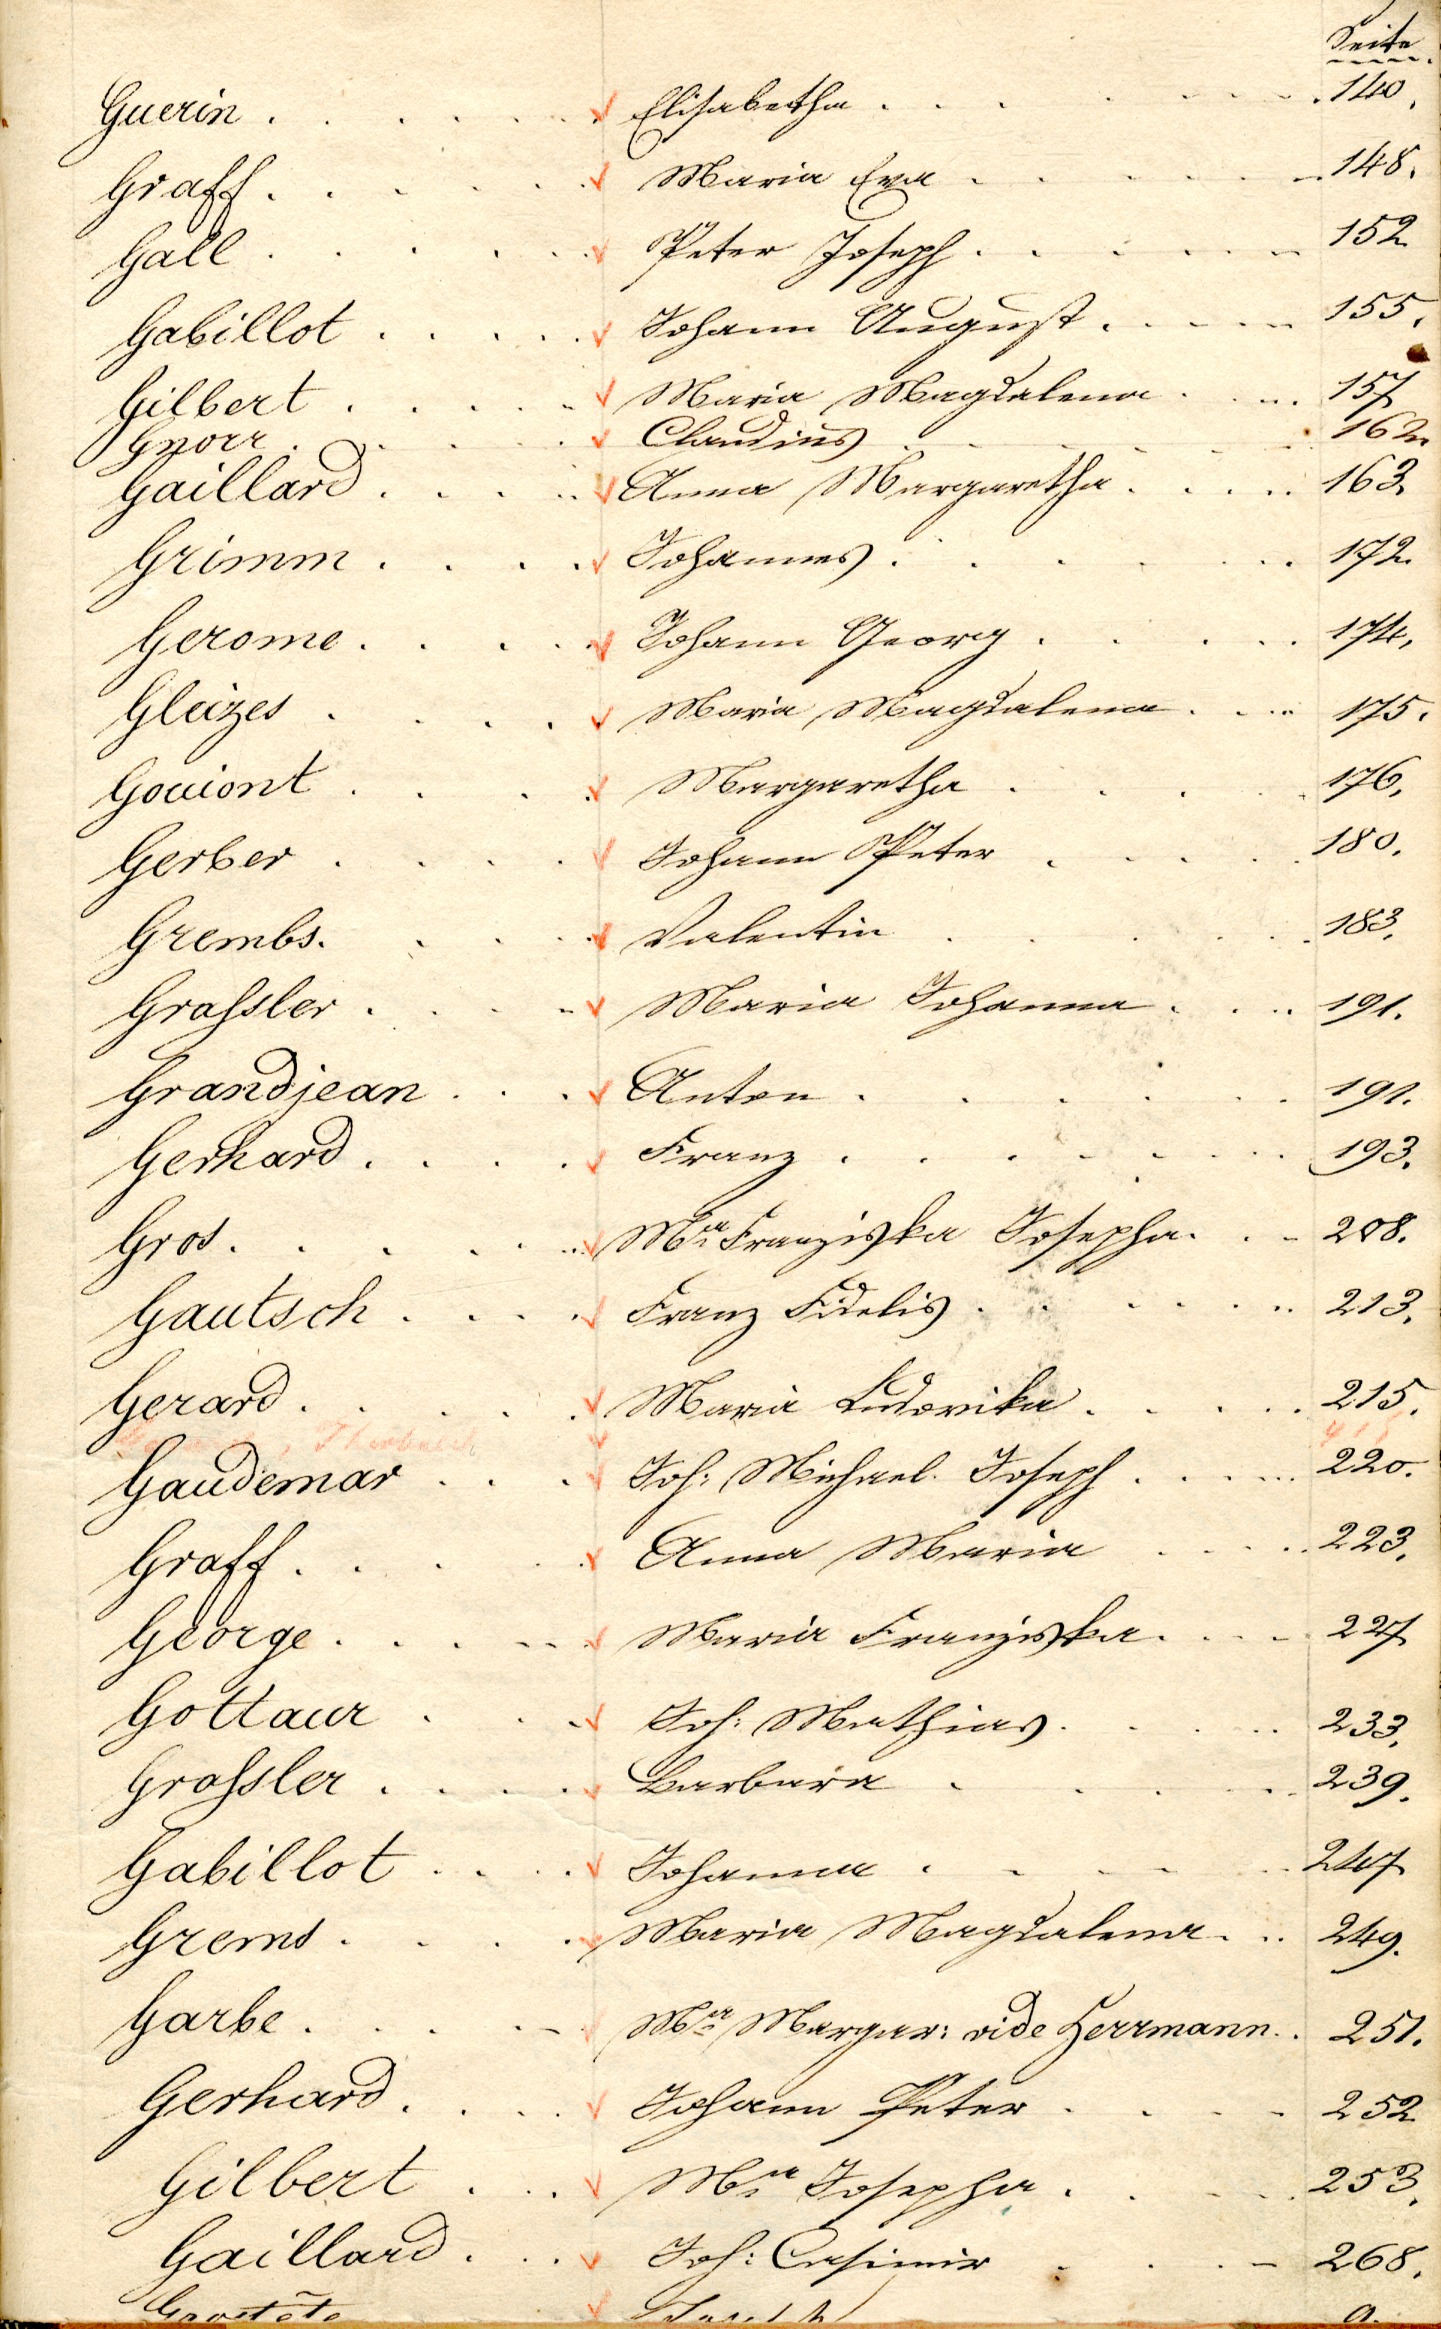 Seite
Guerin . . . . . . Elisabetha . . . . . . 140.
Graff . . . . . . Maria Eva . . . . . . 148.
Gall . . . . . . Peter Joseph . . . . . . 152
Gabillot . . . . . Johann August . . . . . 155.
Gilbert . . . . . Maria Magdalena . . . . 157
Gnorr . . . . . Claudius . . . . . . 162.
Gaillard . . . . . Anna Margaretha . . . . 163.
Grimm . . . . Johannes . . . . . . 172.
Gerome . . . . Johann Georg . . . . . 174.
Gleizes . . . . Maria Magdalena . . . 175.
Gouiont . . . . Margaretha . . . . . 176.
Gerber . . . . Johann Peter . . . . 180.
Grembs . . . . Valentin . . . . . . 183.
Graßler . . . . Maria Johanna . . . 191.
Grandjean . . . Anton . . . . . . 191.
Gerhard . . . . Franz . . . . . . . 193.
Gros . . . . . . Ma. Franziska Josepha . . . 208.
Gautsch . . . . Franz Fidelis . . . . . . 213.
Gerard . . . . . Maria Ludovika . . . . . 215.
Gaudemar . . . Joh: Michael Joseph . . . . 220.
Graff . . . . Anna Maria . . . . 223.
George . . . . . Maria Franziska . . . . 227
Gottaur . . . Joh: Mathias . . . . . 233.
Graßler . . . . Barbara . . . . . 239.
Gabillot . . . . Johanna . . . . . 247
Grems . . . . Maria Magdalena . . . 249.
Garbe . . . . . Ma. Margar: vide Herrmann . . 251.
Gerhard . . . . Johann Peter . . . . 252
Gilbert . . . Ma. Josepha . . . . 253.
Gaillard . . . Joh: Casimir . . . . 268.